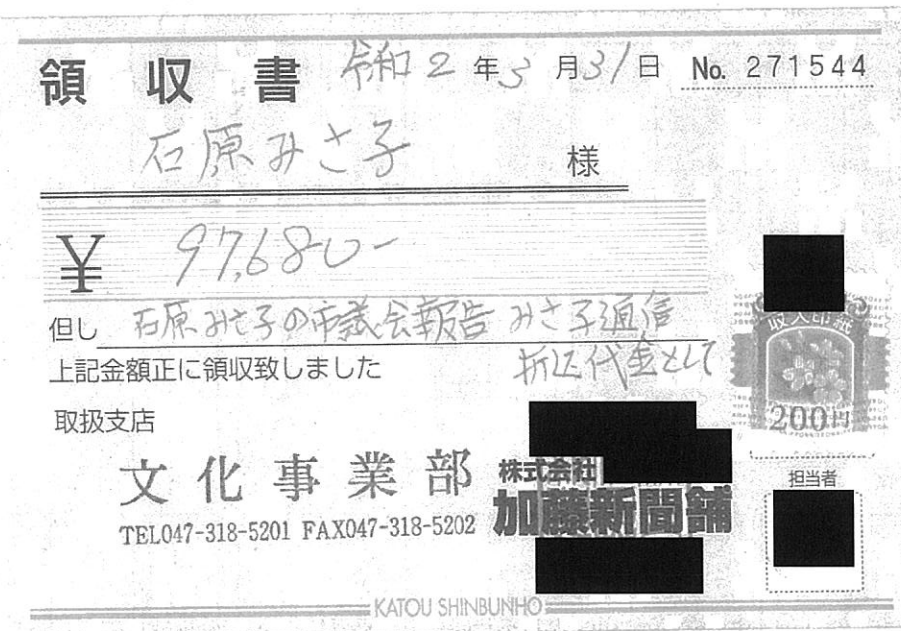 領収書 令和2年3月31日 No. 271544
石原みさ子 様
¥ 97,680-
但し 石原みさ子の市議会報告 みさ子通信
折込代金として
上記金額正に領収致しました
取扱支店
文化事業部
TEL047-318-5201 FAX047-318-5202
株式会社
加藤新聞舗
収入印紙
200円
担当者
KATOU SHINBUNHO